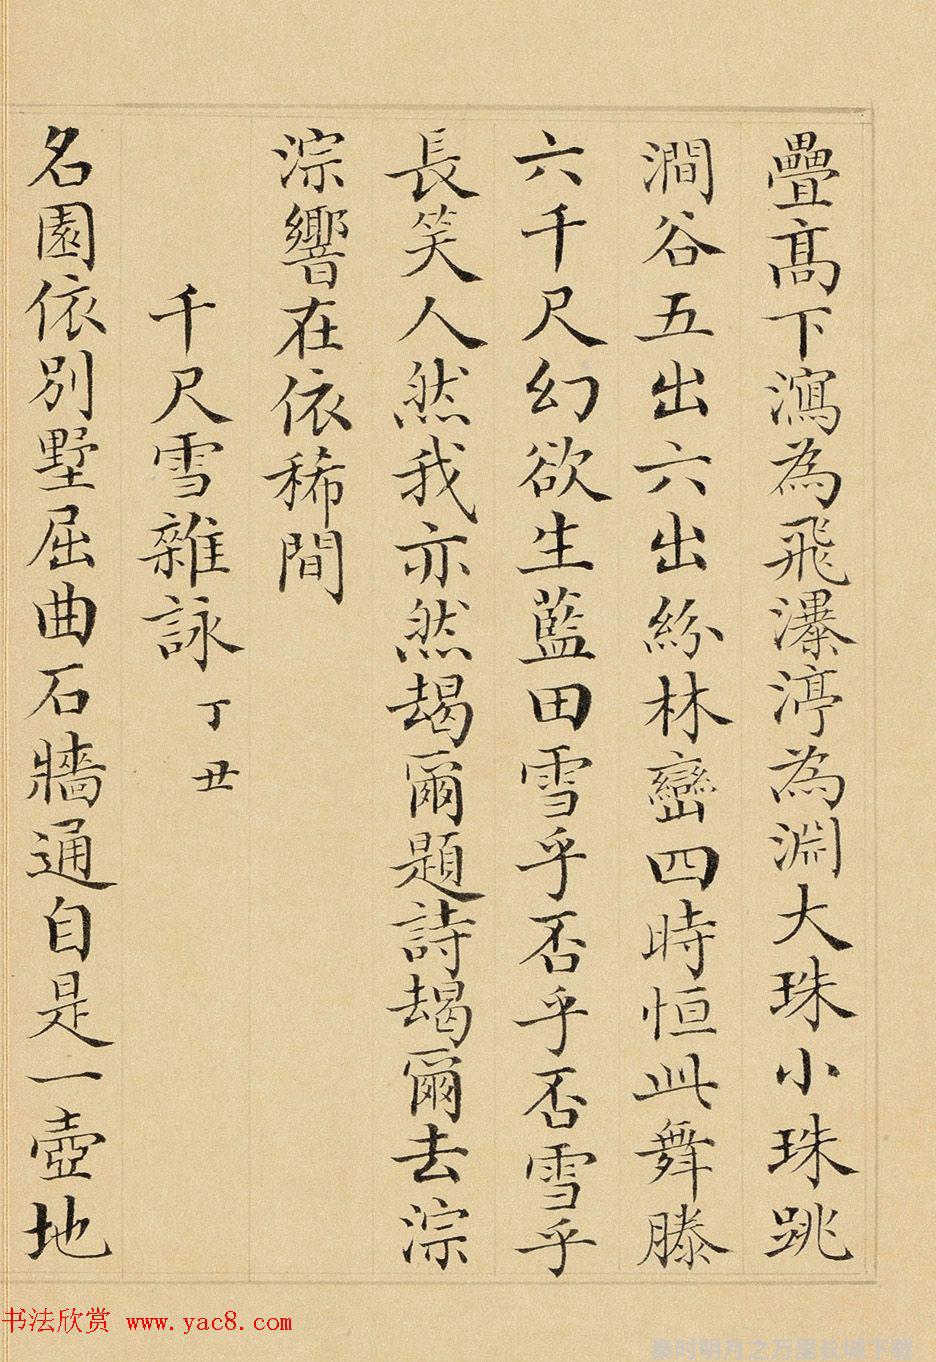 疊高下瀉為飛瀑渟為淵大珠小珠跳
澗谷五出六出紛林巒四時恒此舞滕
六千尺幻欲生藍田雪乎否乎否雪乎
長笑人然我亦然朅爾題詩朅爾去淙
淙響在依稀間
千尺雪雜詠 丁丑
名園依別墅屈曲石牆通自是一壺地
书法欣赏 www.yac8.com
秦时明月之万里长城下载